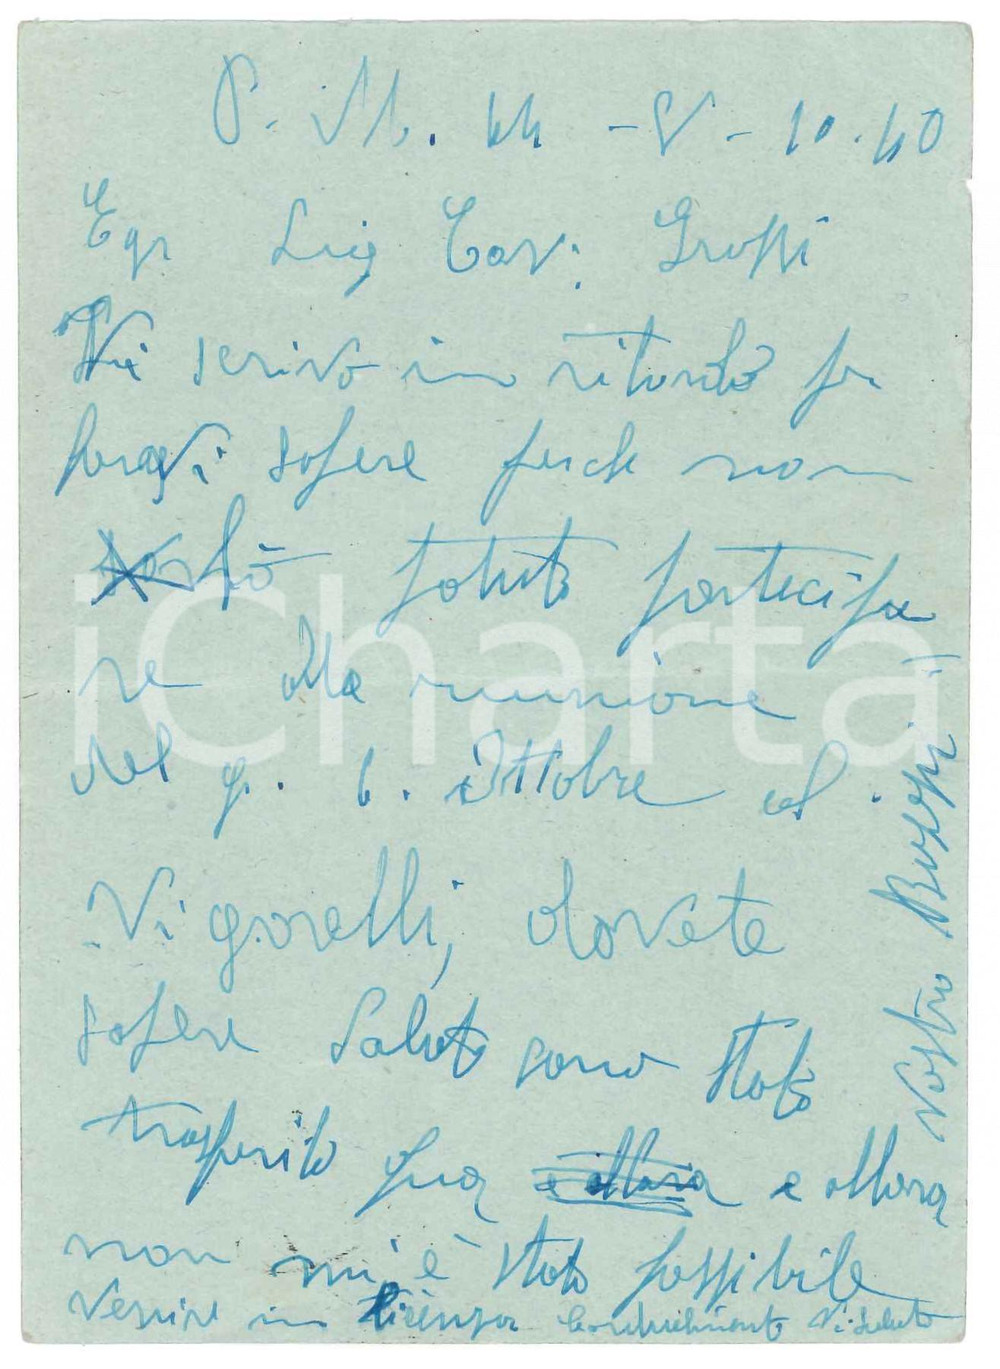 P. M. 44 - V - 10. 40
Egr Sig Cav. Grossi
Vi scrivo in ritardo per
farvi sapere perche non
hò potuto partecipa
re alla riunione
del g. 6. Ottobre al.
Vigorelli, dovete
sapere Saluti sono stato
trasferito qua e allora
non mi è stato possibile
venire in licenza Cordialmente Vi saluto
Vostro
iCharta